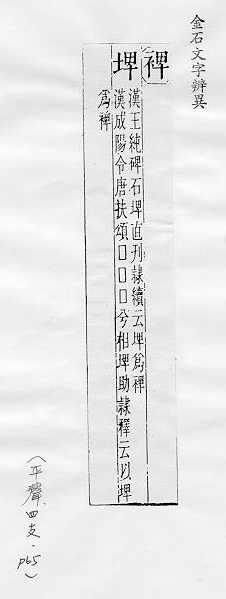 金石文字辨異
裨
埤
漢王純碑石埤直刋隷續云埤爲裨
漢成陽令唐扶頌口口口兮相埤助隷釋云以埤
爲裨
(平聲.四支.P65)